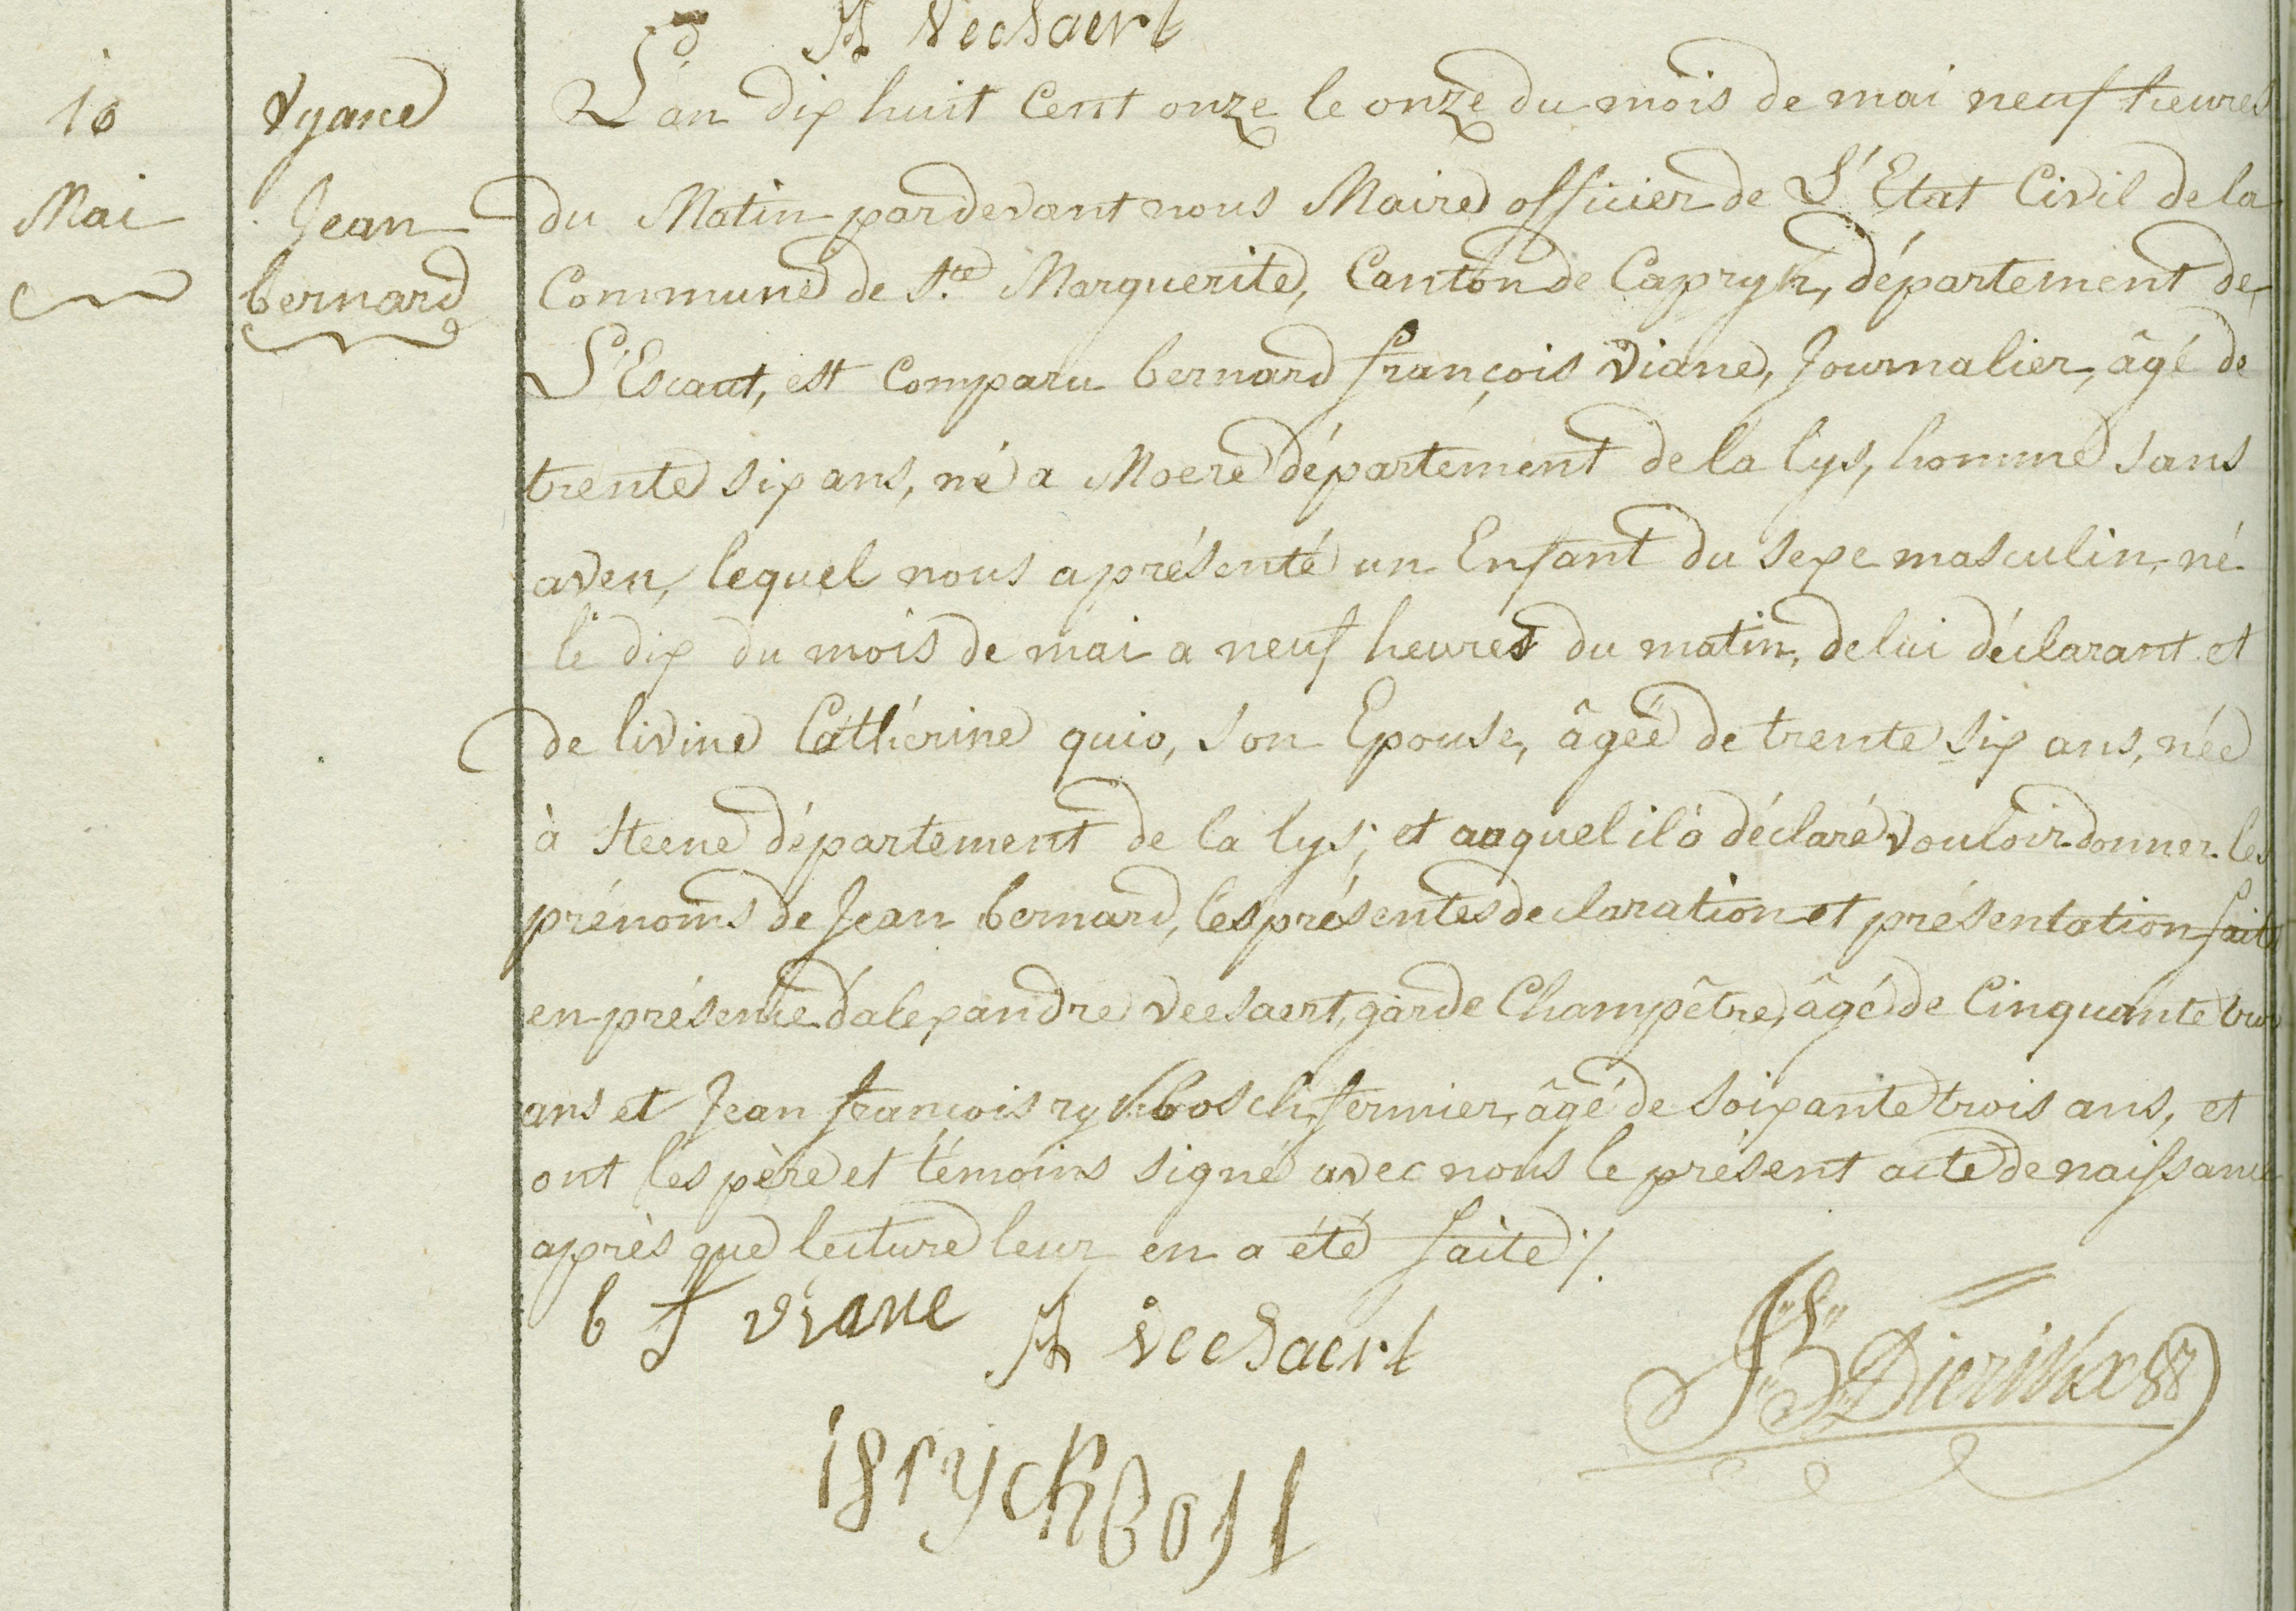 A Veesaert
10
Mai
Vyane
Jean
bernard
L'an dix huit Cent onze le onze du mois de mai neuf heures
du Matin pardevant nous Maire officier de L'Etat Civil de la
Commune de Ste. Marguerite, Canton de Capryk, département de
L'Escaut, est Comparu bernard françois Viane, Journalier, âgé de
trente six ans, né a Moere département de la lys, homme sans
aveu, lequel nous a présenté un Enfant du sexe masculin, né
le dix du mois de mai a neuf heures du matin, de lui déclarant et
de livine Cathérine quio, son Epouse, âgée de trente six ans, née
à Steene département de la lys; et auquel il a déclaré vouloir donner les
prénoms de Jean bernard, les présentes declaration et présentation faites
en présence d'alexandre veesaert, garde Champêtre, âgé de Cinquante trois
ans et Jean françois rykbosch, fermier, âgé de soixante trois ans, et
ont les père et témoins signé avec nous le présent acte de naissance
après que lecture leur en a été faite ./.
b f viane A Veesaert
Dierikx
ryckbost